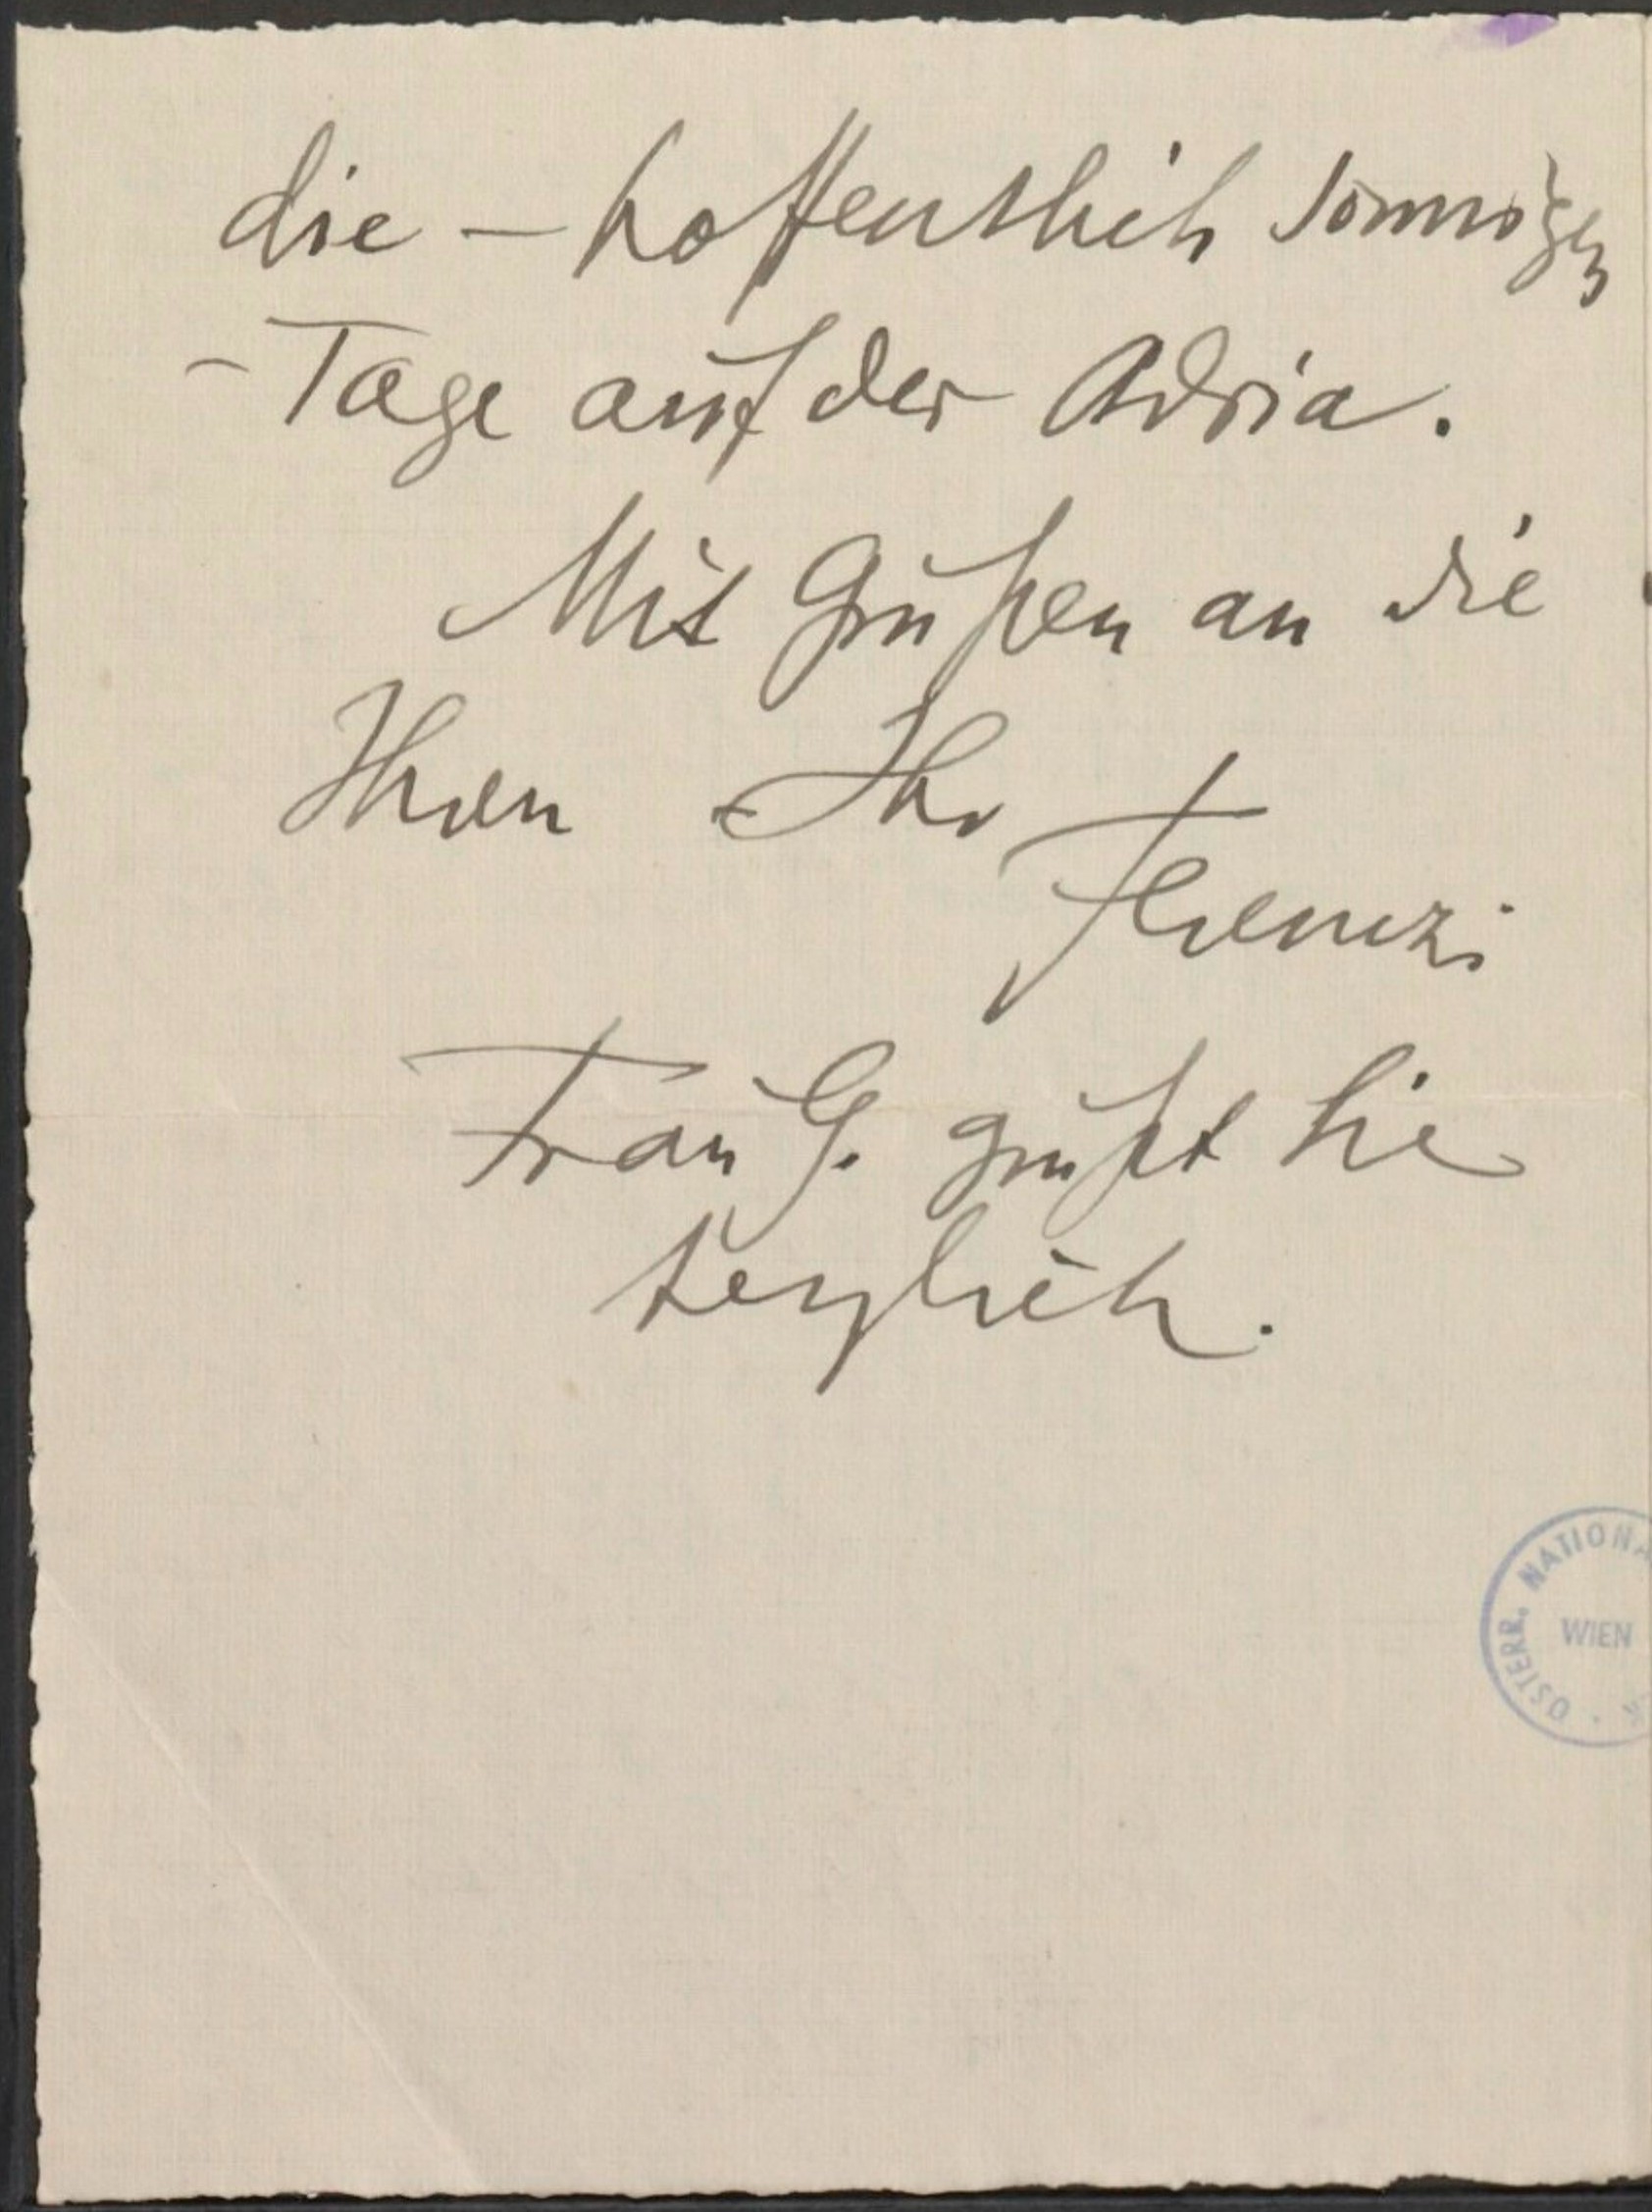 die – hoffentlich sonnigen
– Tage auf der Adria.
Mit Grüßen an die
Ihren Ihr
Ferenczi
Frau G. grüßt Sie
herzlich.
ÖSTERR. NATIONA
WIEN